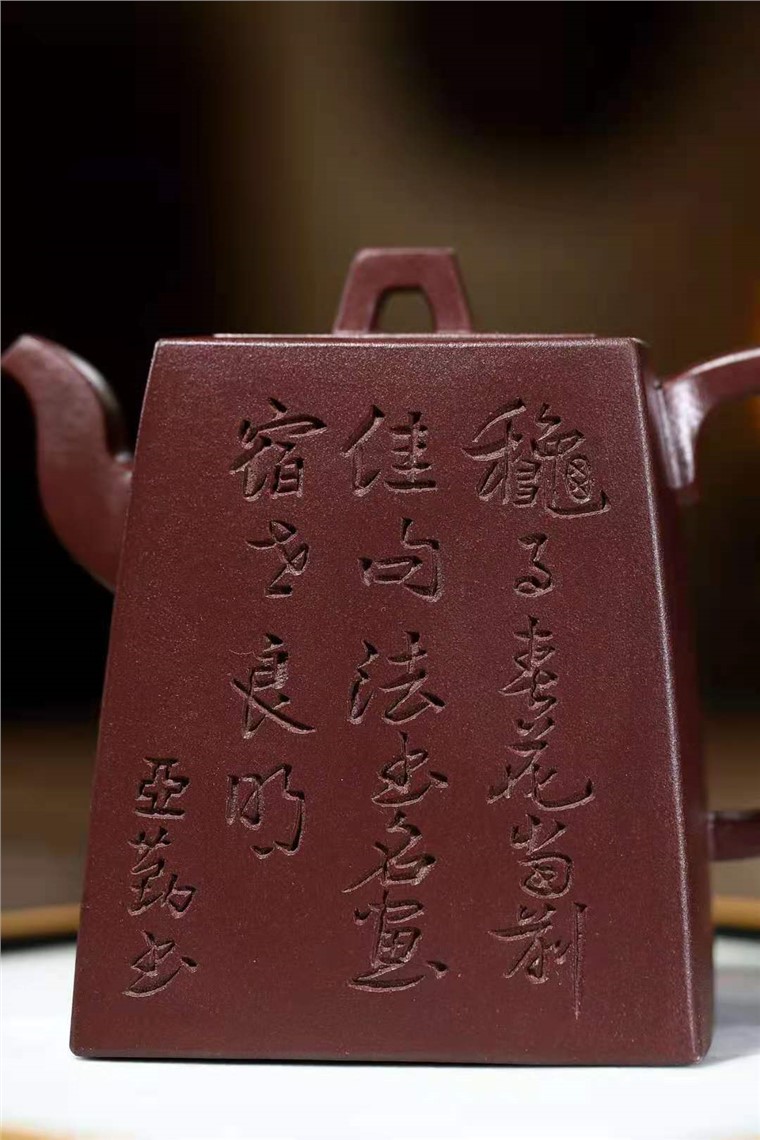 龝月春花當前
佳句法書名畫
宿世良朋
亞勤書